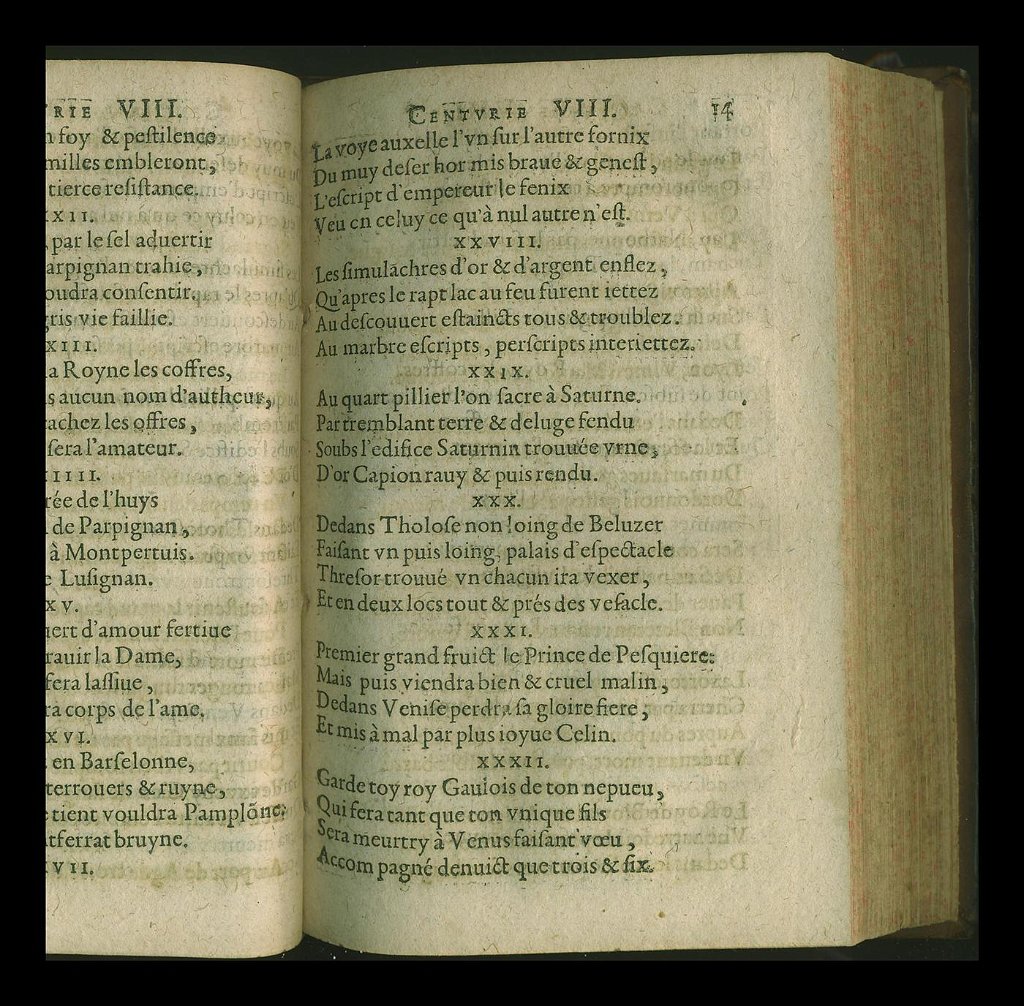 RIE VIII.
n foy & peſtilence
milles embleront,
tierce reſiſtance.
XXII.
par le ſel aduertir
arpignan trahie,
oudra conſentir.
gris vie faillie.
XIII.
a Royne les coffres,
s aucun nom d'autheur,
achez les offres,
ſera l'amateur.
IIII.
rée de l'huys
de Parpignan,
à Montpertuis.
e Luſignan.
XV.
uert d'amour fertiue
rauir la Dame,
ſera laſſiue,
ra corps de l'ame.
XVI.
en Barſelonne,
terrouers & ruyne,
tient vouldra Pamplõne:
tferrat bruyne.
VII.
CENTVRIE VIII. 14
La voye auxelle l'vn ſur l'autre fornix
Du muy deſer hor mis braue & geneſt,
L'eſcript d'empereur le fenix
Veu en celuy ce qu'à nul autre n'eſt.
XXVIII.
Les ſimulachres d'or & d'argent enflez,
Qu'apres le rapt lac au feu furent iettez
Au deſcouuert eſtaincts tous & troublez.
Au marbre eſcripts, perſcripts interiettez.
XXIX.
Au quart pillier l'on ſacre à Saturne.
Par tremblant terre & deluge fendu
Soubs l'édifice Saturnin trouuée vrne,
D'or Capion rauy & puis rendu.
XXX.
Dedans Tholoſe non loing de Beluzer
Faiſant vn puis loing, palais d'eſpectacle
Threſor trouué vn chacun ira vexer,
Et en deux locs tout & prés des veſacle.
XXXI.
Premier grand fruict le Prince de Peſquiere:
Mais puis viendra bien & cruel malin,
Dedans Veniſe perdra ſa gloire fiere,
Et mis à mal par plus ioyue Celin.
XXXII.
Garde toy roy Gaulois de ton nepueu,
Qui fera tant que ton vnique fils
Sera meurtry à Venus faiſant vœu,
Accom pagné denuict que trois & ſix.